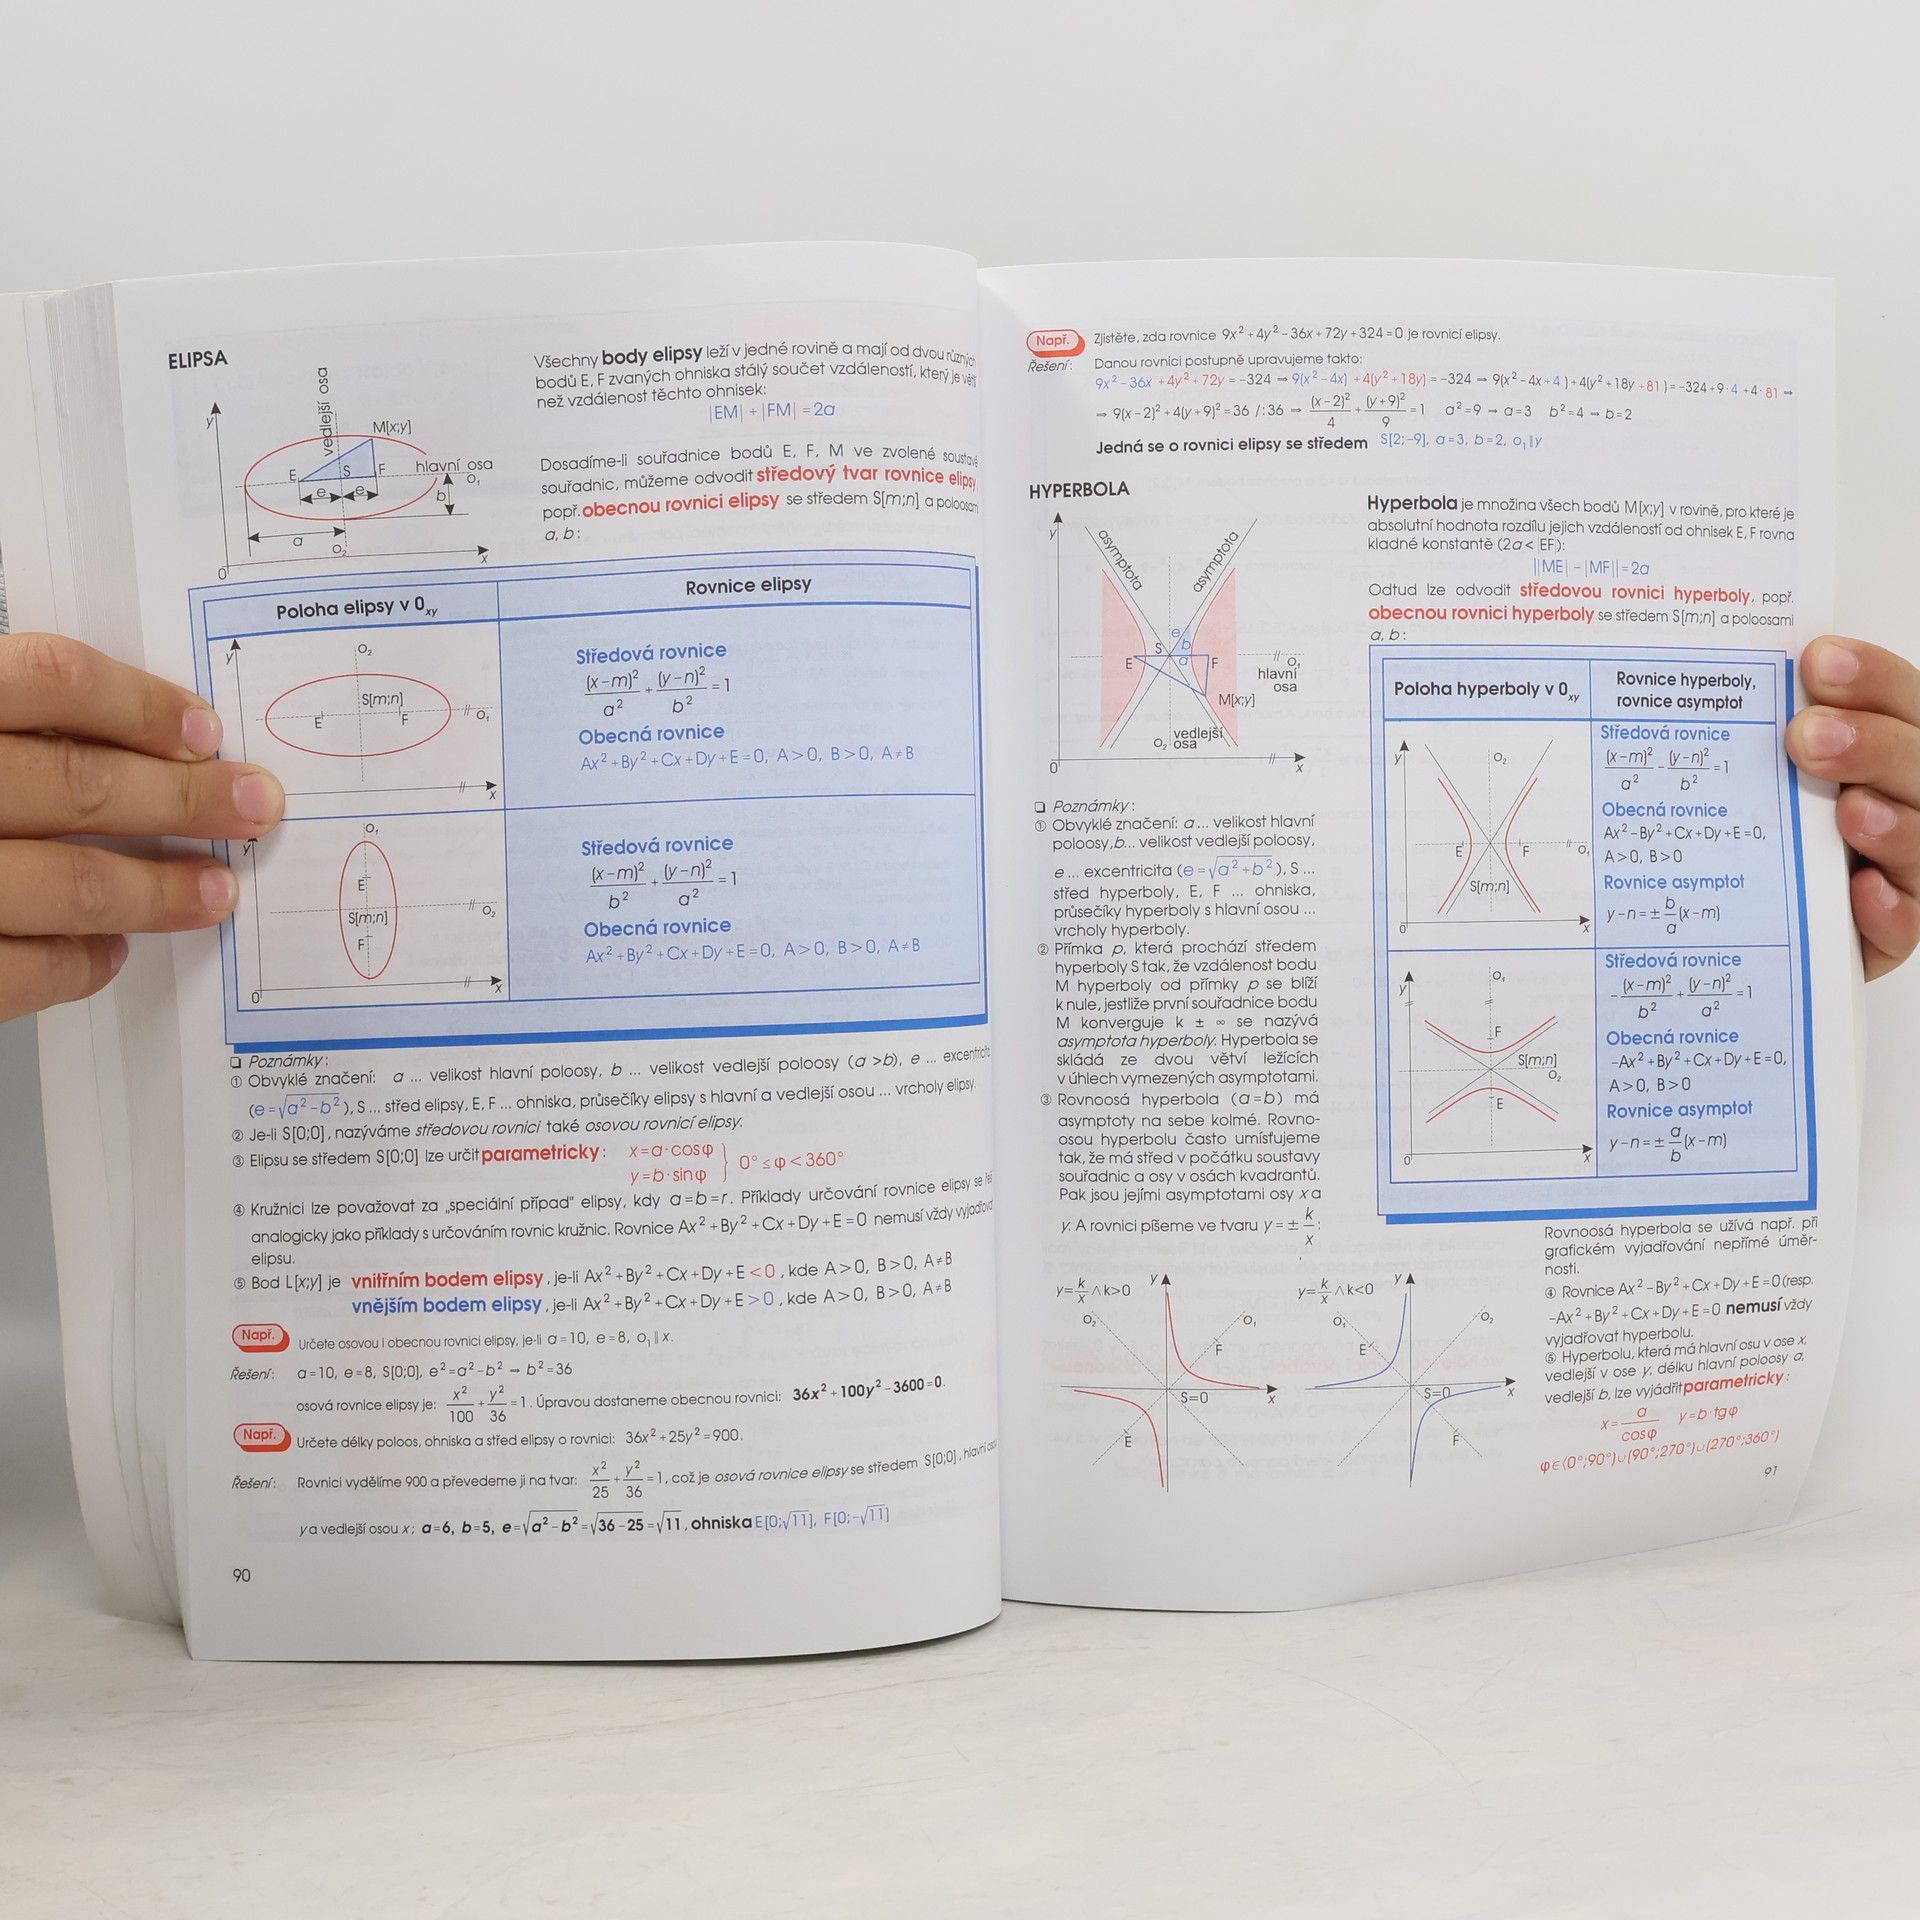 ELIPSA
y
vedlejší osa
M[x;y]
E
S
F
hlavní osa
o₁
e
e
b
a
o₂
x
0
Všechny body elipsy leží v jedné rovině a mají od dvou různých
bodů E, F zvaných ohniska stálý součet vzdáleností, který je větší
než vzdálenost těchto ohnisek:
|EM| + |FM| = 2a
Dosadíme-li souřadnice bodů E, F, M ve zvolené soustavě
souřadnic, můžeme odvodit středový tvar rovnice elipsy,
popř. obecnou rovnici elipsy se středem S[m;n] a poloosami
a, b:
Poloha elipsy v 0xy
Rovnice elipsy
y
o₂
S[m;n]
E
F
o₁
x
Středová rovnice
(x−m)²/a² + (y−n)²/b² = 1
Obecná rovnice
Ax² + By² + Cx + Dy + E = 0, A > 0, B > 0, A ≠ B
y
o₁
E
S[m;n]
F
o₂
0
x
Středová rovnice
(x−m)²/b² + (y−n)²/a² = 1
Obecná rovnice
Ax² + By² + Cx + Dy + E = 0, A > 0, B > 0, A ≠ B
❑ Poznámky:
① Obvyklé značení: a ... velikost hlavní poloosy, b ... velikost vedlejší poloosy (a > b), e ... excentricita
(e = √(a² − b²)), S ... střed elipsy, E, F ... ohniska, průsečíky elipsy s hlavní a vedlejší osou ... vrcholy elipsy.
② Je-li S[0;0], nazýváme středovou rovnici také osovou rovnicí elipsy.
③ Elipsu se středem S[0;0] lze určit parametricky: x = a · cos φ
y = b · sin φ } 0° ≤ φ < 360°
④ Kružnici lze považovat za „speciální případ" elipsy, kdy a = b = r. Příklady určování rovnice elipsy se řeší
analogicky jako příklady s určováním rovnic kružnic. Rovnice Ax² + By² + Cx + Dy + E = 0 nemusí vždy vyjadřovat
elipsu.
⑤ Bod L[x;y] je vnitřním bodem elipsy, je-li Ax² + By² + Cx + Dy + E < 0, kde A > 0, B > 0, A ≠ B
vnějším bodem elipsy, je-li Ax² + By² + Cx + Dy + E > 0, kde A > 0, B > 0, A ≠ B
Např. Určete osovou i obecnou rovnici elipsy, je-li a = 10, e = 8, o₁ ∥ x.
Řešení: a = 10, e = 8, S[0;0], e² = a² − b² ⇒ b² = 36
osová rovnice elipsy je: x²/100 + y²/36 = 1. Úpravou dostaneme obecnou rovnici: 36x² + 100y² − 3600 = 0.
Např. Určete délky poloos, ohniska a střed elipsy o rovnici: 36x² + 25y² = 900.
Řešení: Rovnici vydělíme 900 a převedeme ji na tvar: x²/25 + y²/36 = 1, což je osová rovnice elipsy se středem S[0;0], hlavní osou
y a vedlejší osou x; a = 6, b = 5, e = √(a² − b²) = √(36 − 25) = √11, ohniska E[0;√11], F[0;−√11]
90
Např. Zjistěte, zda rovnice 9x² + 4y² − 36x + 72y + 324 = 0 je rovnicí elipsy.
Řešení: Danou rovnici postupně upravujeme takto:
9x² − 36x + 4y² + 72y = −324 ⇒ 9(x² − 4x) + 4(y² + 18y) = −324 ⇒ 9(x² − 4x + 4) + 4(y² + 18y + 81) = −324 + 9 · 4 + 4 · 81 ⇒
⇒ 9(x − 2)² + 4(y + 9)² = 36 /:36 ⇒ (x−2)²/4 + (y+9)²/9 = 1 a² = 9 ⇒ a = 3 b² = 4 ⇒ b = 2
Jedná se o rovnici elipsy se středem S[2;−9], a = 3, b = 2, o₁ ∥ y
HYPERBOLA
y
asymptota
asymptota
e
b
S
a
E
F
o₁
hlavní
osa
M[x;y]
vedlejší
o₂ osa
0
x
Hyperbola je množina všech bodů M[x;y] v rovině, pro které je
absolutní hodnota rozdílu jejich vzdáleností od ohnisek E, F rovna
kladné konstantě (2a < |EF|):
||ME| − |MF|| = 2a
Odtud lze odvodit středovou rovnici hyperboly, popř.
obecnou rovnici hyperboly se středem S[m;n] a poloosami
a, b:
❑ Poznámky:
① Obvyklé značení: a ... velikost hlavní
poloosy, b... velikost vedlejší poloosy,
e ... excentricita (e = √(a² + b²)), S ...
střed hyperboly, E, F ... ohniska,
průsečíky hyperboly s hlavní osou ...
vrcholy hyperboly.
② Přímka p, která prochází středem
hyperboly S tak, že vzdálenost bodu
M hyperboly od přímky p se blíží
k nule, jestliže první souřadnice bodu
M konverguje k ± ∞ se nazývá
asymptota hyperboly. Hyperbola se
skládá ze dvou větví ležících
v úhlech vymezených asymptotami.
③ Rovnoosá hyperbola (a = b) má
asymptoty na sebe kolmé. Rovno-
osou hyperbolu často umísťujeme
tak, že má střed v počátku soustavy
souřadnic a osy v osách kvadrantů.
Pak jsou jejími asymptotami osy x a
y. A rovnici píšeme ve tvaru y = ± k/x :
Poloha hyperboly v 0xy
Rovnice hyperboly,
rovnice asymptot
y
o₂
E
F
o₁
S[m;n]
0
x
Středová rovnice
(x−m)²/a² − (y−n)²/b² = 1
Obecná rovnice
Ax² − By² + Cx + Dy + E = 0,
A > 0, B > 0
Rovnice asymptot
y − n = ± b/a (x − m)
y
o₁
F
S[m;n]
o₂
E
0
x
Středová rovnice
−(x−m)²/b² + (y−n)²/a² = 1
Obecná rovnice
−Ax² + By² + Cx + Dy + E = 0,
A > 0, B > 0
Rovnice asymptot
y − n = ± a/b (x − m)
y = k/x ∧ k > 0
y
o₂
o₁
F
S=0
x
E
y = k/x ∧ k < 0
y
o₁
o₂
E
S=0
x
F
Rovnoosá hyperbola se užívá např. při
grafickém vyjadřování nepřímé úměr-
nosti.
④ Rovnice Ax² − By² + Cx + Dy + E = 0 (resp.
−Ax² + By² + Cx + Dy + E = 0 nemusí vždy
vyjadřovat hyperbolu.
⑤ Hyperbolu, která má hlavní osu v ose x,
vedlejší v ose y, délku hlavní poloosy a,
vedlejší b, lze vyjádřit parametricky:
x = a/cos φ y = b · tg φ
φ ∈ ⟨0°;90°) ∪ (90°;270°) ∪ (270°;360°)
91